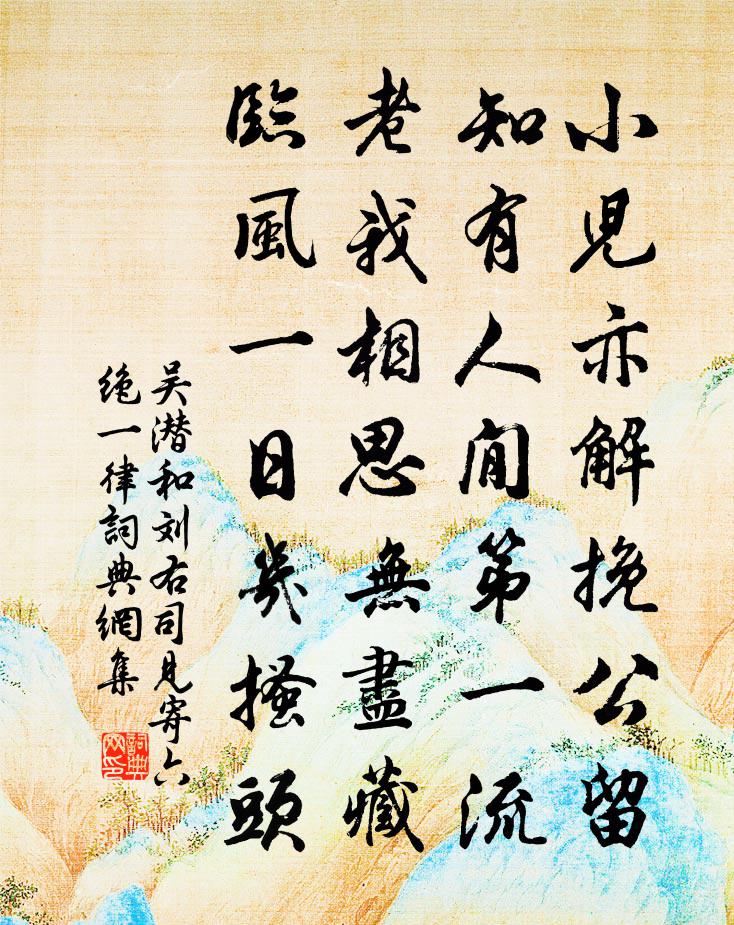 小兒亦解挽公留
知有人間第一流
老我相思無盡藏
臨風一日幾搔頭
吴潜和刘右司見寄六
絶一律詞典網集
詞典
网印